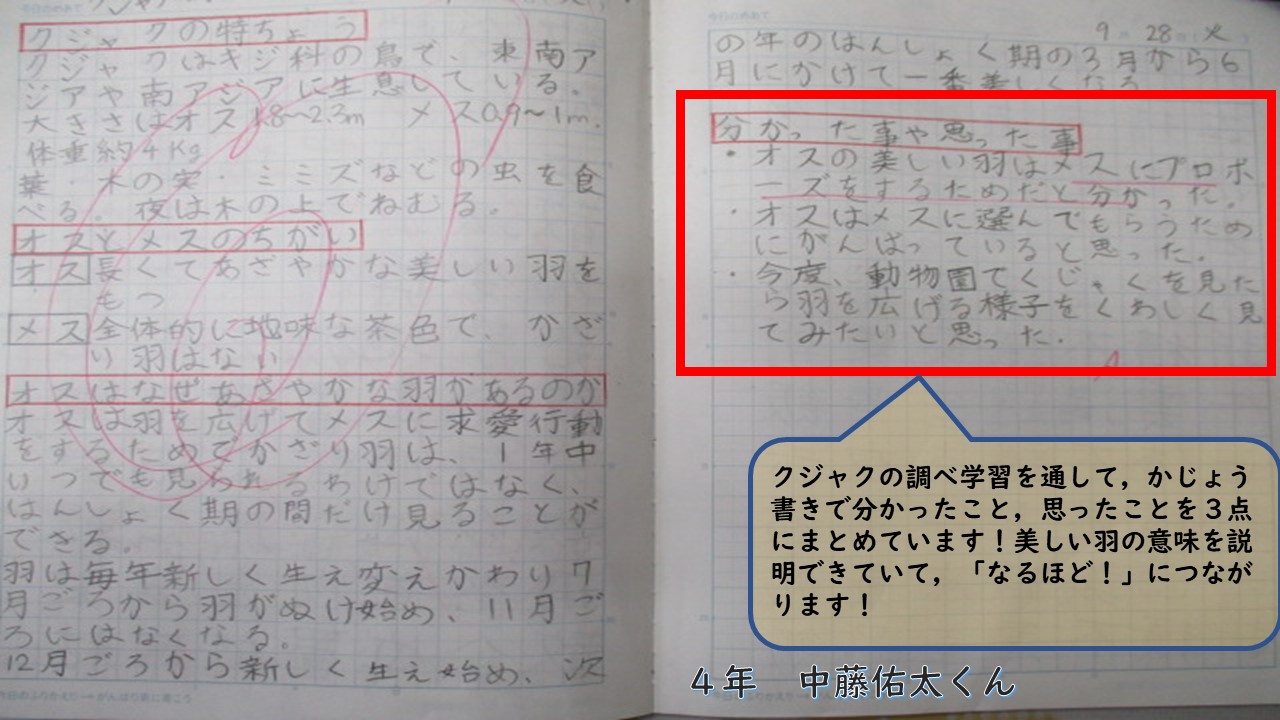 クジャクの特ちょう
クジャクはキジ科の鳥で、東南ア
ジアや南アジアに生息している。
大きさはオス1.8～2.3m メス0.9～1m.
体重約4Kg
葉・木の実・ミミズなどの虫を食
べる。夜は木の上でねむる。
オスとメスのちがい
オス 長くてあざやかな美しい羽を
もつ
メス 全体的に地味な茶色で、かざ
り羽はない
オスはなぜあざやかな羽があるのか
オスは羽を広げてメスに求愛行動
をするためでかざり羽は、1年中
いつでも見られるわけではなく、
はんしょく期の間だけ見ることが
できる。
羽は毎年新しく生え変えかわり7
月ごろから羽がぬけ始め、11月ご
ろにはなくなる。
12月ごろから新しく生え始め、次
今日のめあて
9 28 火
の年のはんしょく期の3月から6
月にかけて一番美しくなる
分かった事や思った事
・オスの美しい羽はメスにプロポ
ーズをするためだと分かった。
・オスはメスに選んでもらうため
にがんばっていると思った.
・今度、動物園でくじゃくを見た
ら羽を広げる様子をくわしく見
てみたいと思った.
クジャクの調べ学習を通して，かじょう
書きで分かったこと，思ったことを３点
にまとめています！美しい羽の意味を説
明できていて，「なるほど！」につなが
ります！
４年　中藤佑太くん